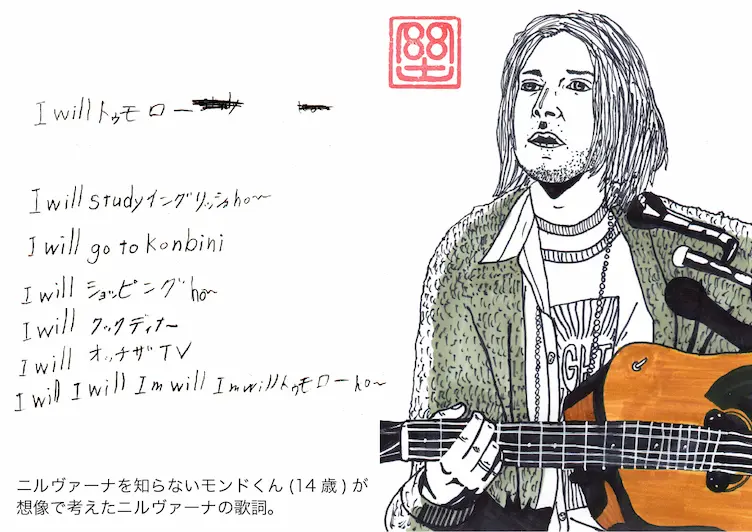 I will トゥモロー
I will study イングリッシュ ho〜
I will go to konbini
I will ショッピング ho〜
I will クックディナー
I will オッチザTV
I will I will I'm will I'm will トゥモロー ho〜
GHT
ニルヴァーナを知らないモンドくん(14歳)が
想像で考えたニルヴァーナの歌詞。